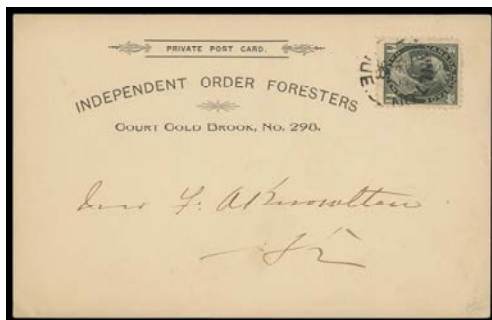 PRIVATE POST CARD.
INDEPENDENT ORDER FORESTERS
COURT GOLD BROOK, NO. 298.
F. A. Knowlton